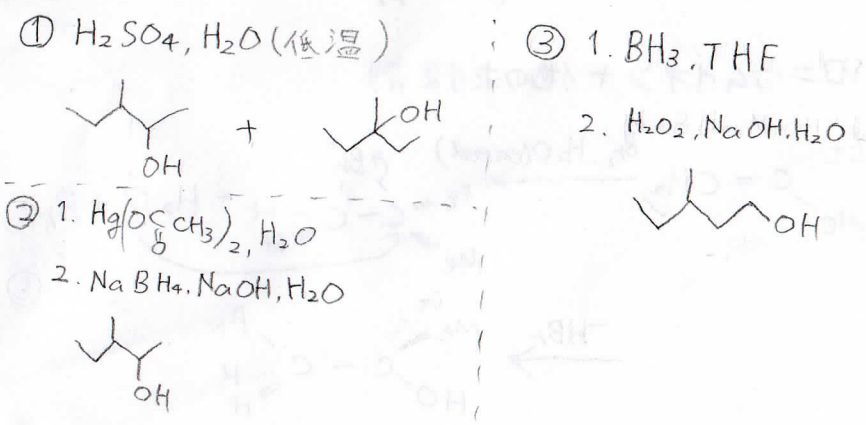 ① H₂SO₄, H₂O (低温)
OH
+
OH
② 1. Hg(OCCH₃)₂, H₂O
O
2. NaBH₄, NaOH, H₂O
OH
③ 1. BH₃, THF
2. H₂O₂, NaOH, H₂O
OH